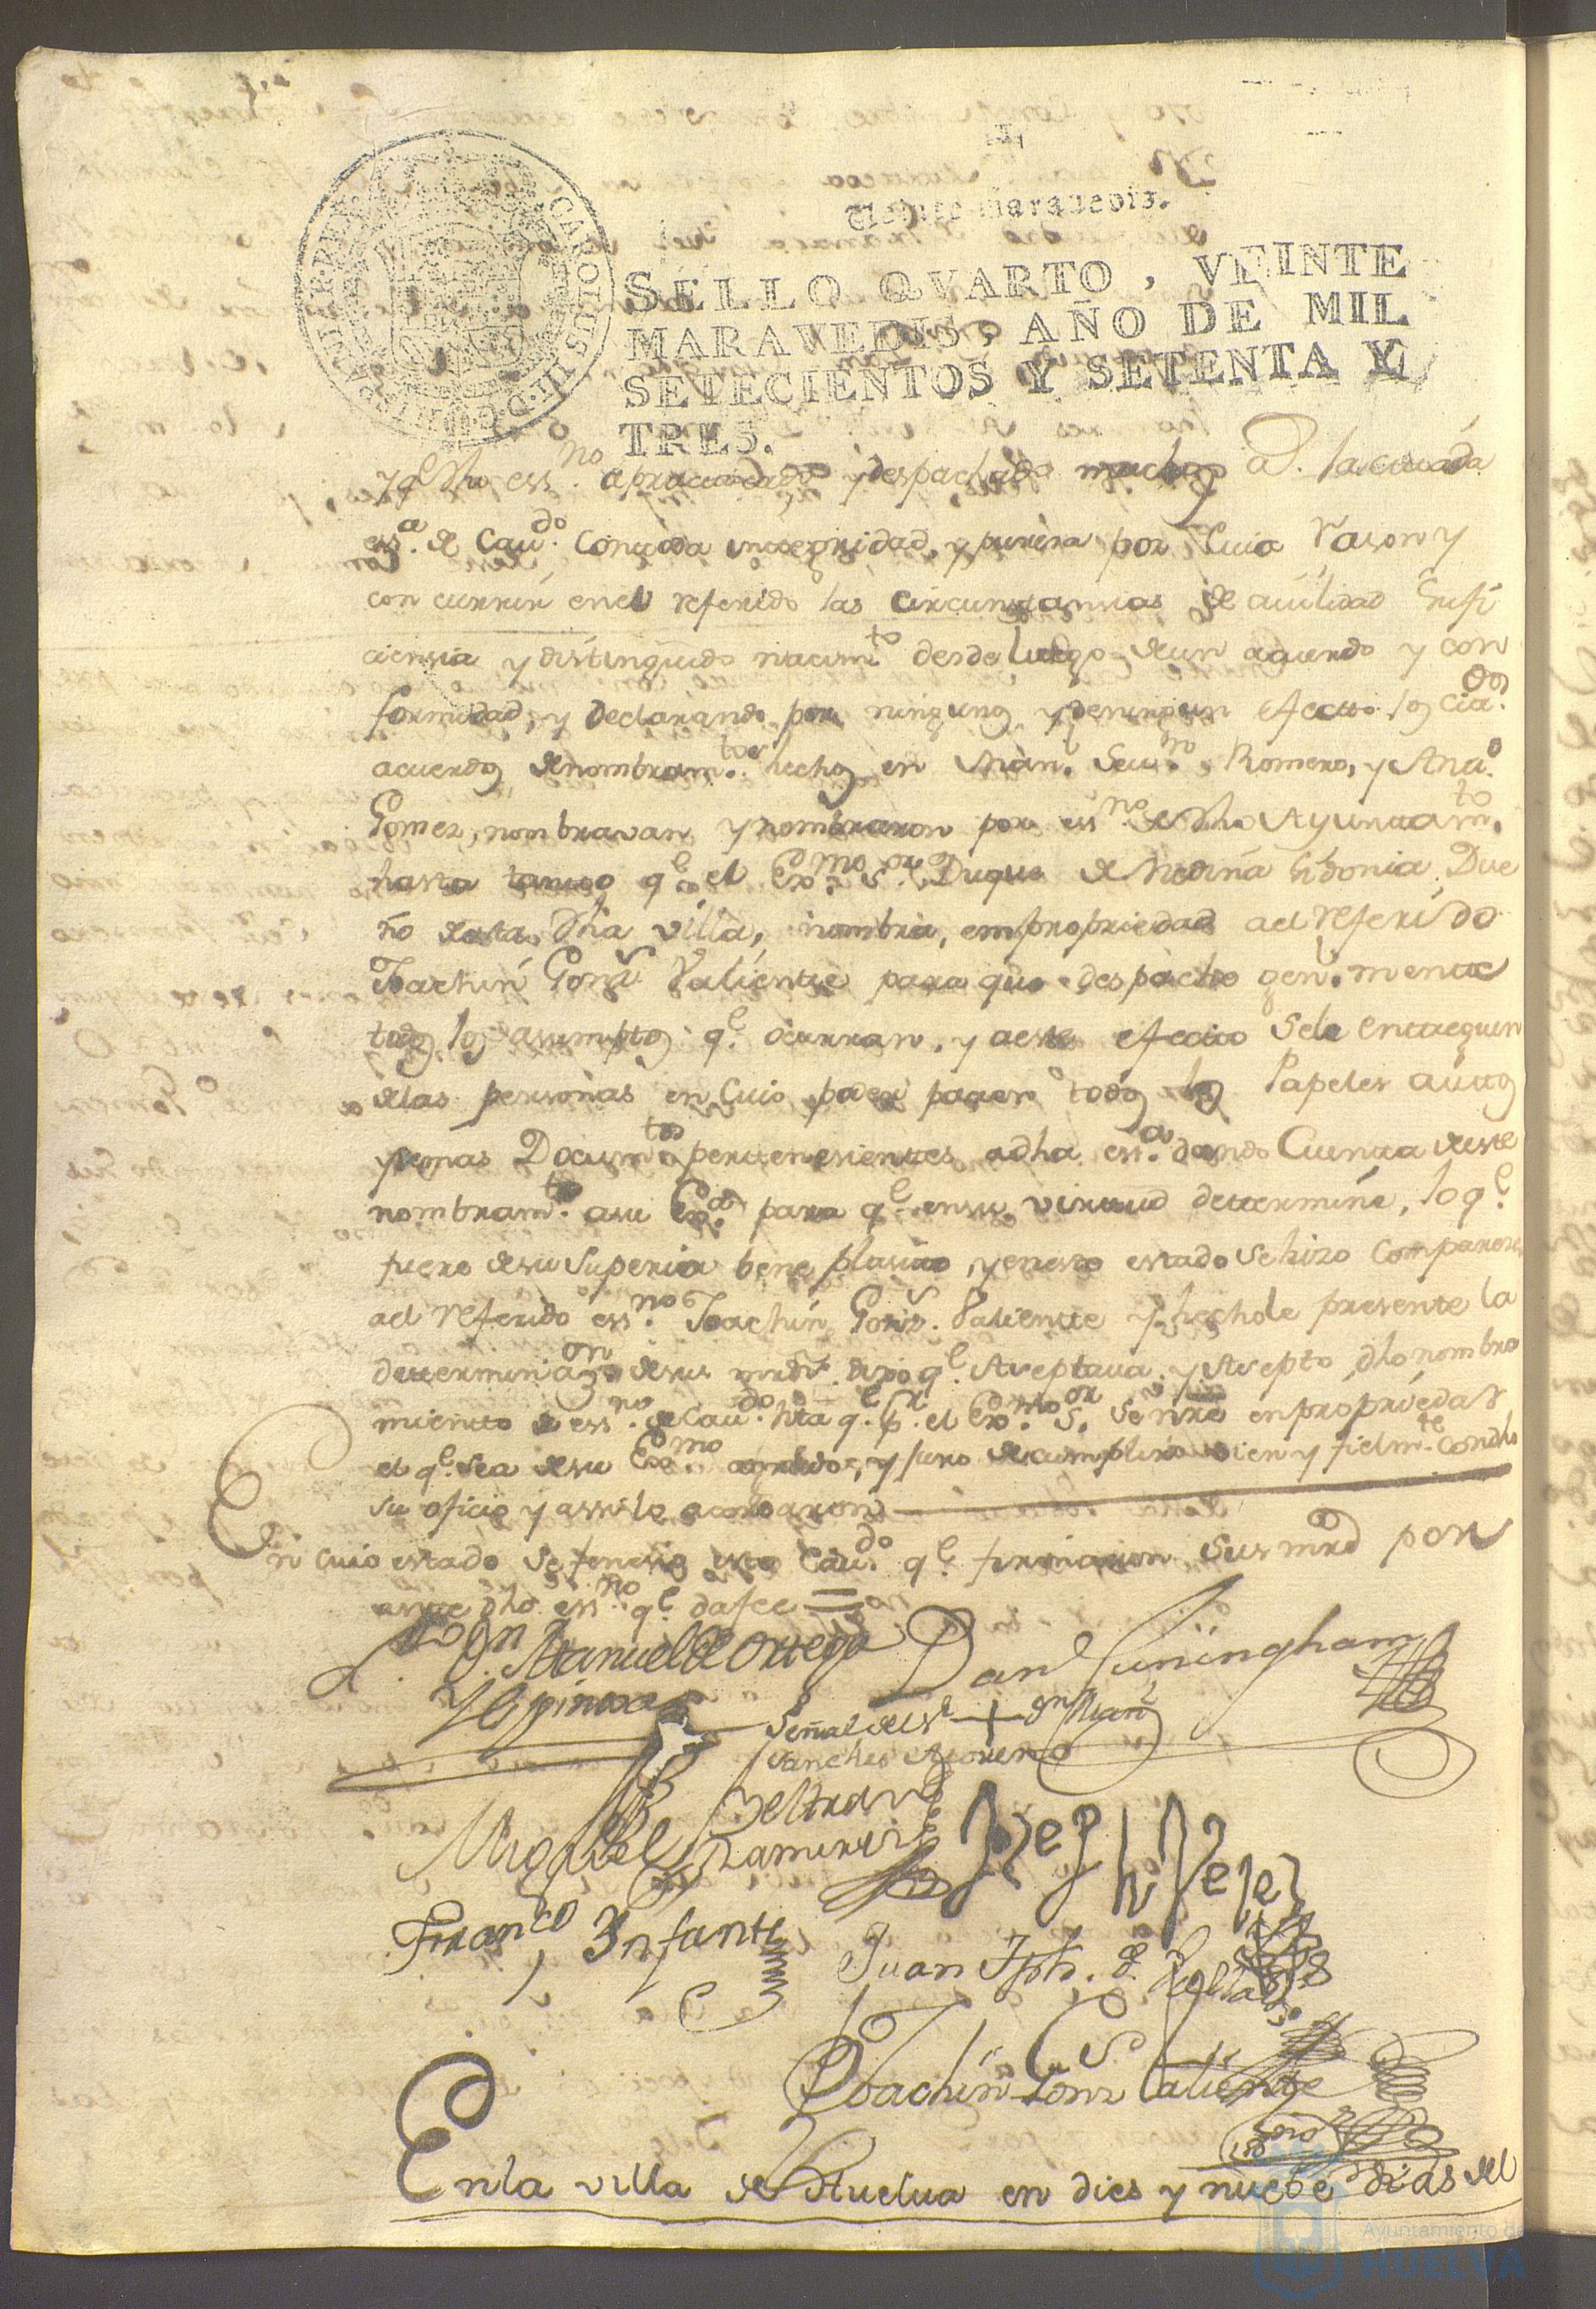 Veinte marauedis.
SELLO QVARTO, VEINTE
MARAVEDIS, AÑO DE MIL
SETECIENTOS Y SETENTA Y
TRES.
y qe dho essno a practicado y despachado muchos as. la citada
essa de Caudo. con toda integridad, y pureza por cuia rason y
con currir en el referido las circunstansias de auilidad sufi
ciensia y distinguido nacimto desde luego de un aquerdo y con
formidad, y declarando por ningunos y de ningun efecto los citados
acuerdos de nombramtos hechos en Man. Romero, y
Gomez, nombravan y nombraron por essno de dho Ayuntamto.
hasta tanto qe el Exmo Sor Duque de Medina Sidonia Due
ño desta dha villa, nombre, en propriedad al referido
Joachin Gonz Valiente para que despache genl.mente
todos los asumptos qe ocurran, y a este efecto se le entreguen
de las personas en cuio poder paren todos los Papeles autos
y demas Documtos pertenesientes a dha essa. dando Cuenta deste
nombramto. a su Exa para qe en su virtud determine, lo qe
fuere de su superior bene plasito, y en este estado se hizo comparecer
al referido essno Joachin Gonz. Valiente y hechole presente la
determinason de sus mrds. dixo qe Aceptaua y Acepto dho nombra
miento de essno. de Caudo. hta qe pr. el Exmo Sor Se nre en propriedad
el qe sea de su Exmo agrado, y juro de cumplir bien y fielmte con dho
su oficio y assi lo acordaron
En cuio estado se fenesio este Caudo. qe firmaron sus mrd por
ante dho essno qe dafee =
Ldo Dn Manuel de Ortega
Y Espinosa
Danl Cuningham
Señal de Sr + Dn Man
Sanches Moreno
Miguel Beltran
Ramires
Joseph Peres
Franco Infante
Juan Jph. de
Joachin Gonz Valiente
En la villa de Huelua en dies y nuebe dias del
Ayuntamiento de
HUELVA